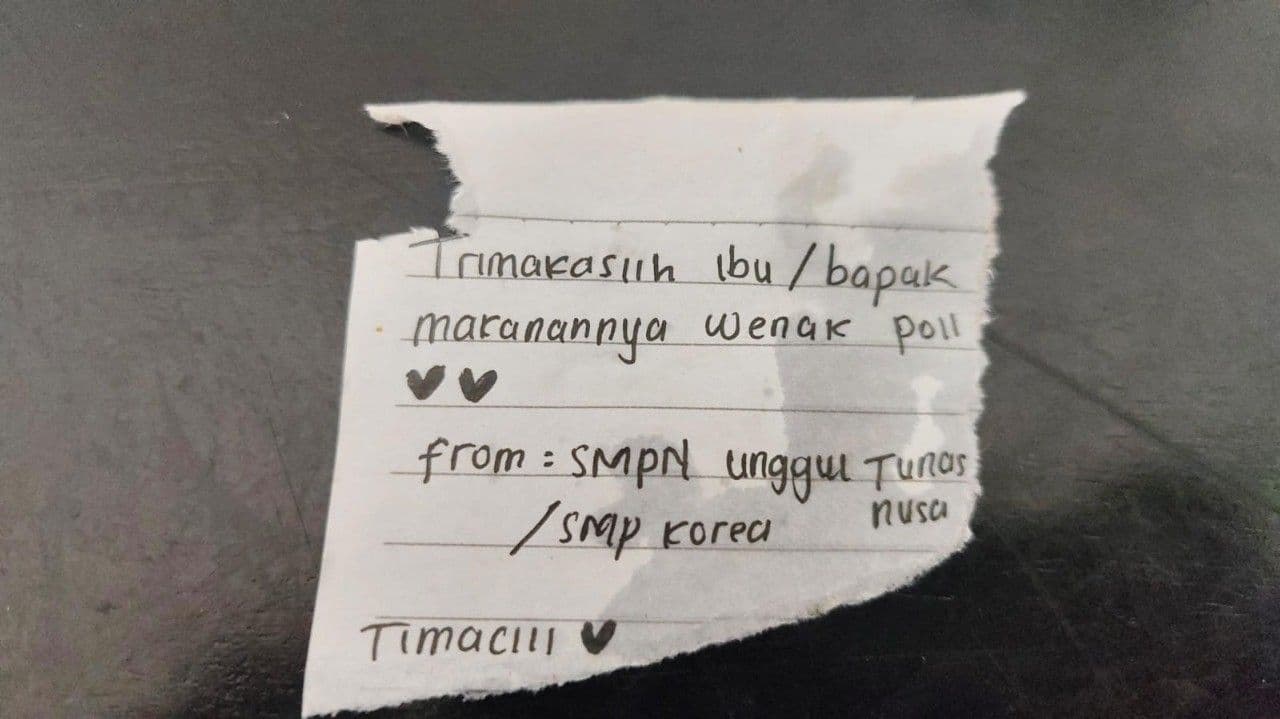 Trimakasiih ibu/bapak
makanannya wenak poll
♥♥
from : SMPN unggul Tunas
nusa
/SMP korea
Timaciii ♥